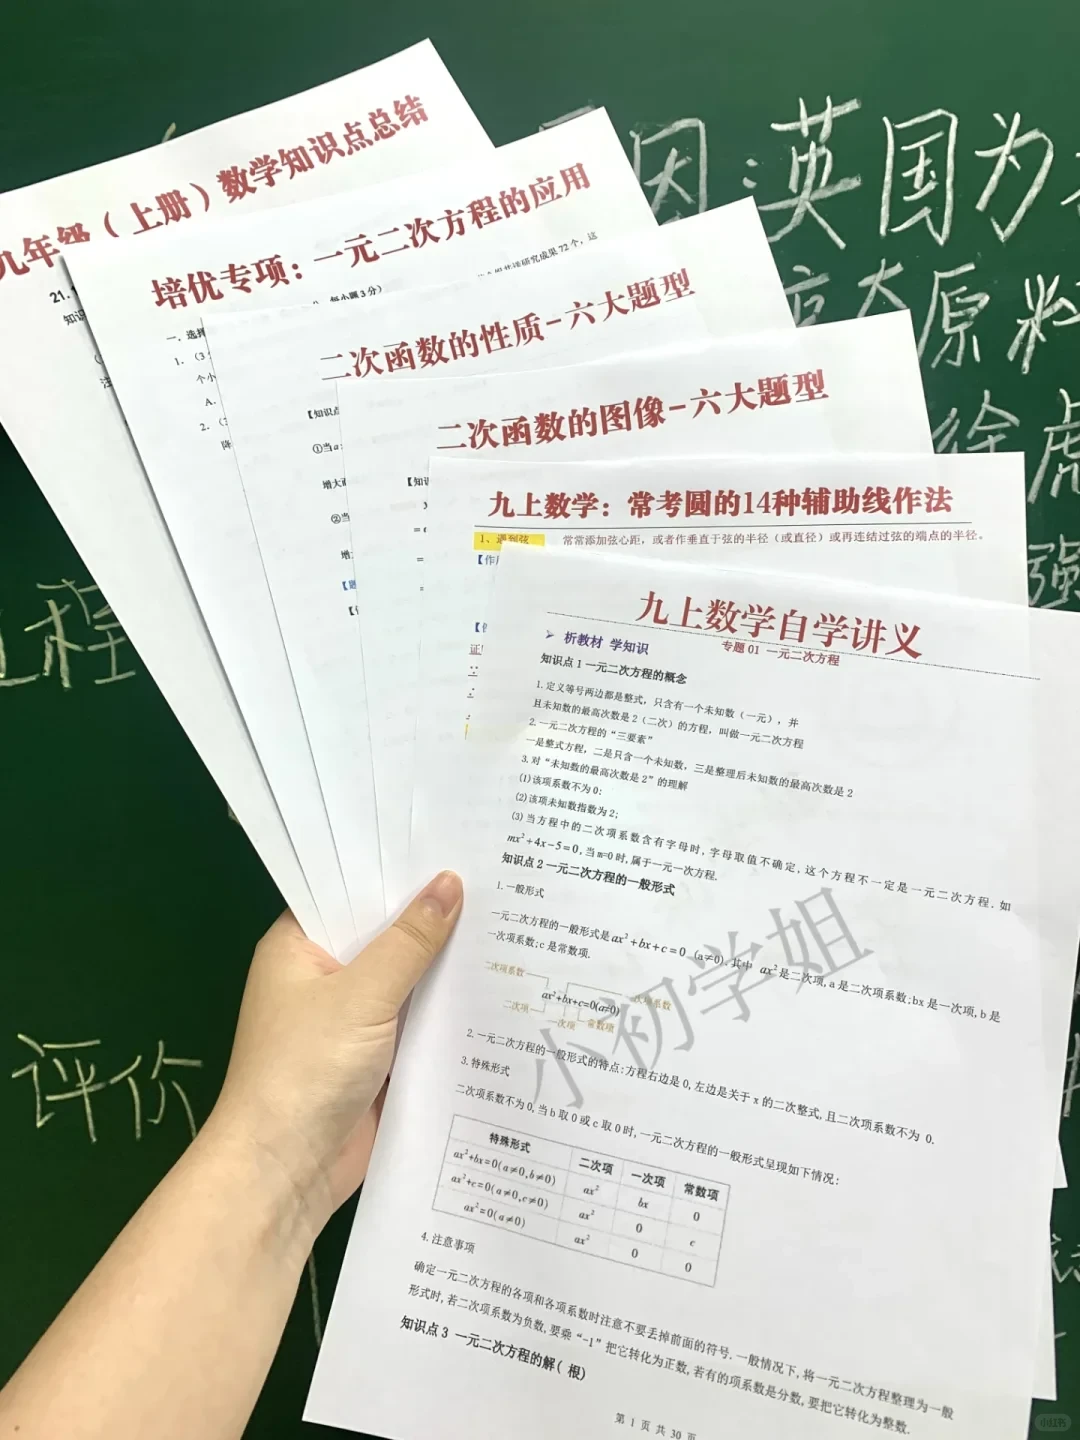 九年级（上册）数学知识点总结
21.
知识
培优专项：一元二次方程的应用
研究成果72个，这
每小题3分）
一．选择
1.（3
个小
A.
2.（
降
二次函数的性质-六大题型
【知识点
①当a
增大
②当
增
二次函数的图像-六大题型
【知识
九上数学：常考圆的14种辅助线作法
1、遇到弦 常常添加弦心距，或者作垂直于弦的半径（或直径）或再连结过弦的端点的半径。
【作
证
九上数学自学讲义
专题01 一元二次方程
➢ 析教材 学知识
知识点1 一元二次方程的概念
1.定义等号两边都是整式，只含有一个未知数（一元），并
且未知数的最高次数是2（二次）的方程，叫做一元二次方程
2.一元二次方程的“三要素”
一是整式方程，二是只含一个未知数，三是整理后未知数的最高次数是2
3.对“未知数的最高次数是2”的理解
(1)该项系数不为0;
(2)该项未知数指数为2;
(3)当方程中的二次项系数含有字母时,字母取值不确定,这个方程不一定是一元二次方程.如
mx²+4x-5=0,当m=0时,属于一元一次方程.
知识点2 一元二次方程的一般形式
1.一般形式
一元二次方程的一般形式是ax²+bx+c=0 (a≠0).其中 ax²是二次项,a是二次项系数;bx是一次项,b是
一次项系数;c是常数项.
二次项系数 一次项系数
ax²+bx+c=0(a≠0)
二次项 一次项 常数项
2.一元二次方程的一般形式的特点:方程右边是0,左边是关于x的二次整式,且二次项系数不为 0.
3.特殊形式
二次项系数不为0,当b取0或c取0时,一元二次方程的一般形式呈现如下情况:
特殊形式 二次项 一次项 常数项
ax²+bx=0(a≠0,b≠0) ax² bx 0
ax²+c=0(a≠0,c≠0) ax² 0 c
ax²=0(a≠0) ax² 0 0
4.注意事项
确定一元二次方程的各项和各项系数时注意不要丢掉前面的符号.一般情况下,将一元二次方程整理为一般
形式时,若二次项系数为负数,要乘“-1”把它转化为正数,若有的项系数是分数,要把它转化为整数.
知识点3 一元二次方程的解(根)
第 1 页 共 30 页
小初学姐
因:英国为
原料
徐
强
程
评价
小红书